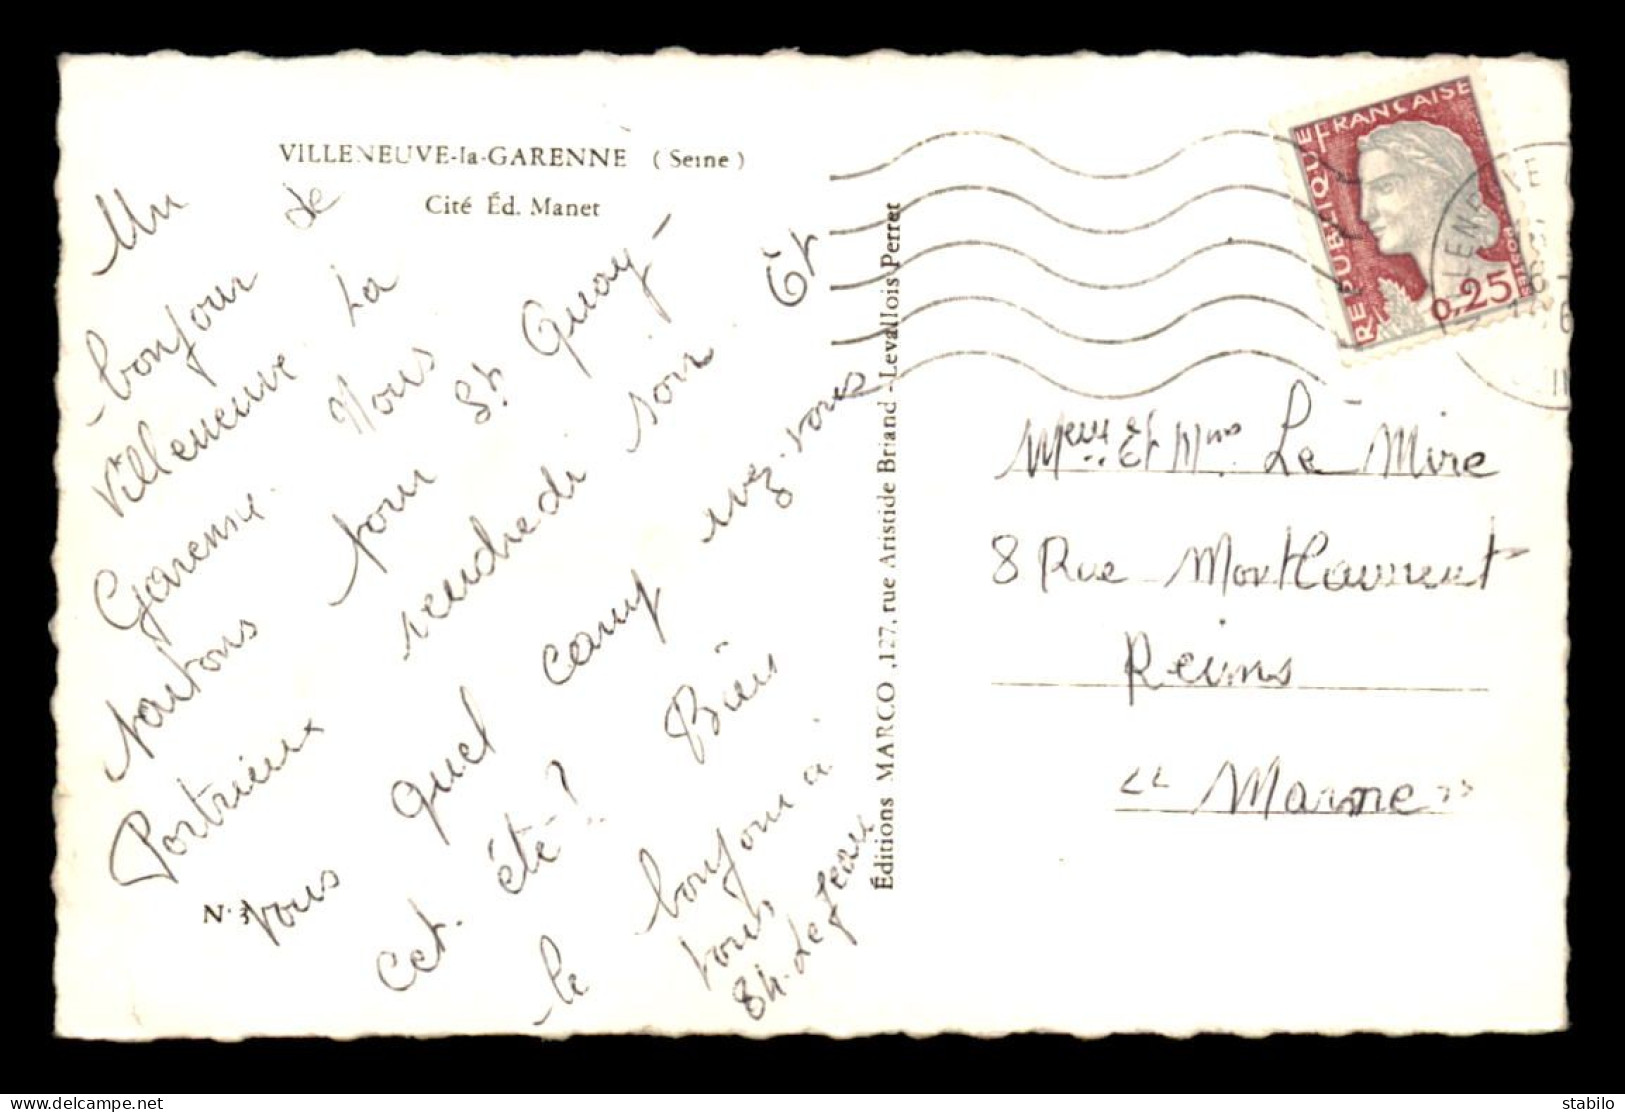 VILLENEUVE-la-GARENNE (Seine)
Cité Éd. Manet
Un
bonjour de
Villeneuve La
Garenne. Nous
partons pour St Quay-
Portrieux vendredi soir. Et
vous quel camp avez-vous
cet été-? Bien
le bonjour à
tous
Ch. Le Jean
N° 3
Éditions MARCO, 127, rue Aristide Briand - Levallois Perret
REPUBLIQUE FRANÇAISE
POSTES
0,25
Et Mme Le Mire
8 Rue Montlaurent
Reims
"Marne"
stabilo